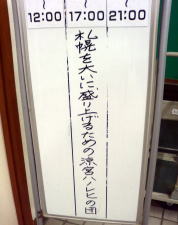 ～ ～ ～
12:00 17:00 21:00
札幌を大いに盛り上げるための涼宮ハルヒの団